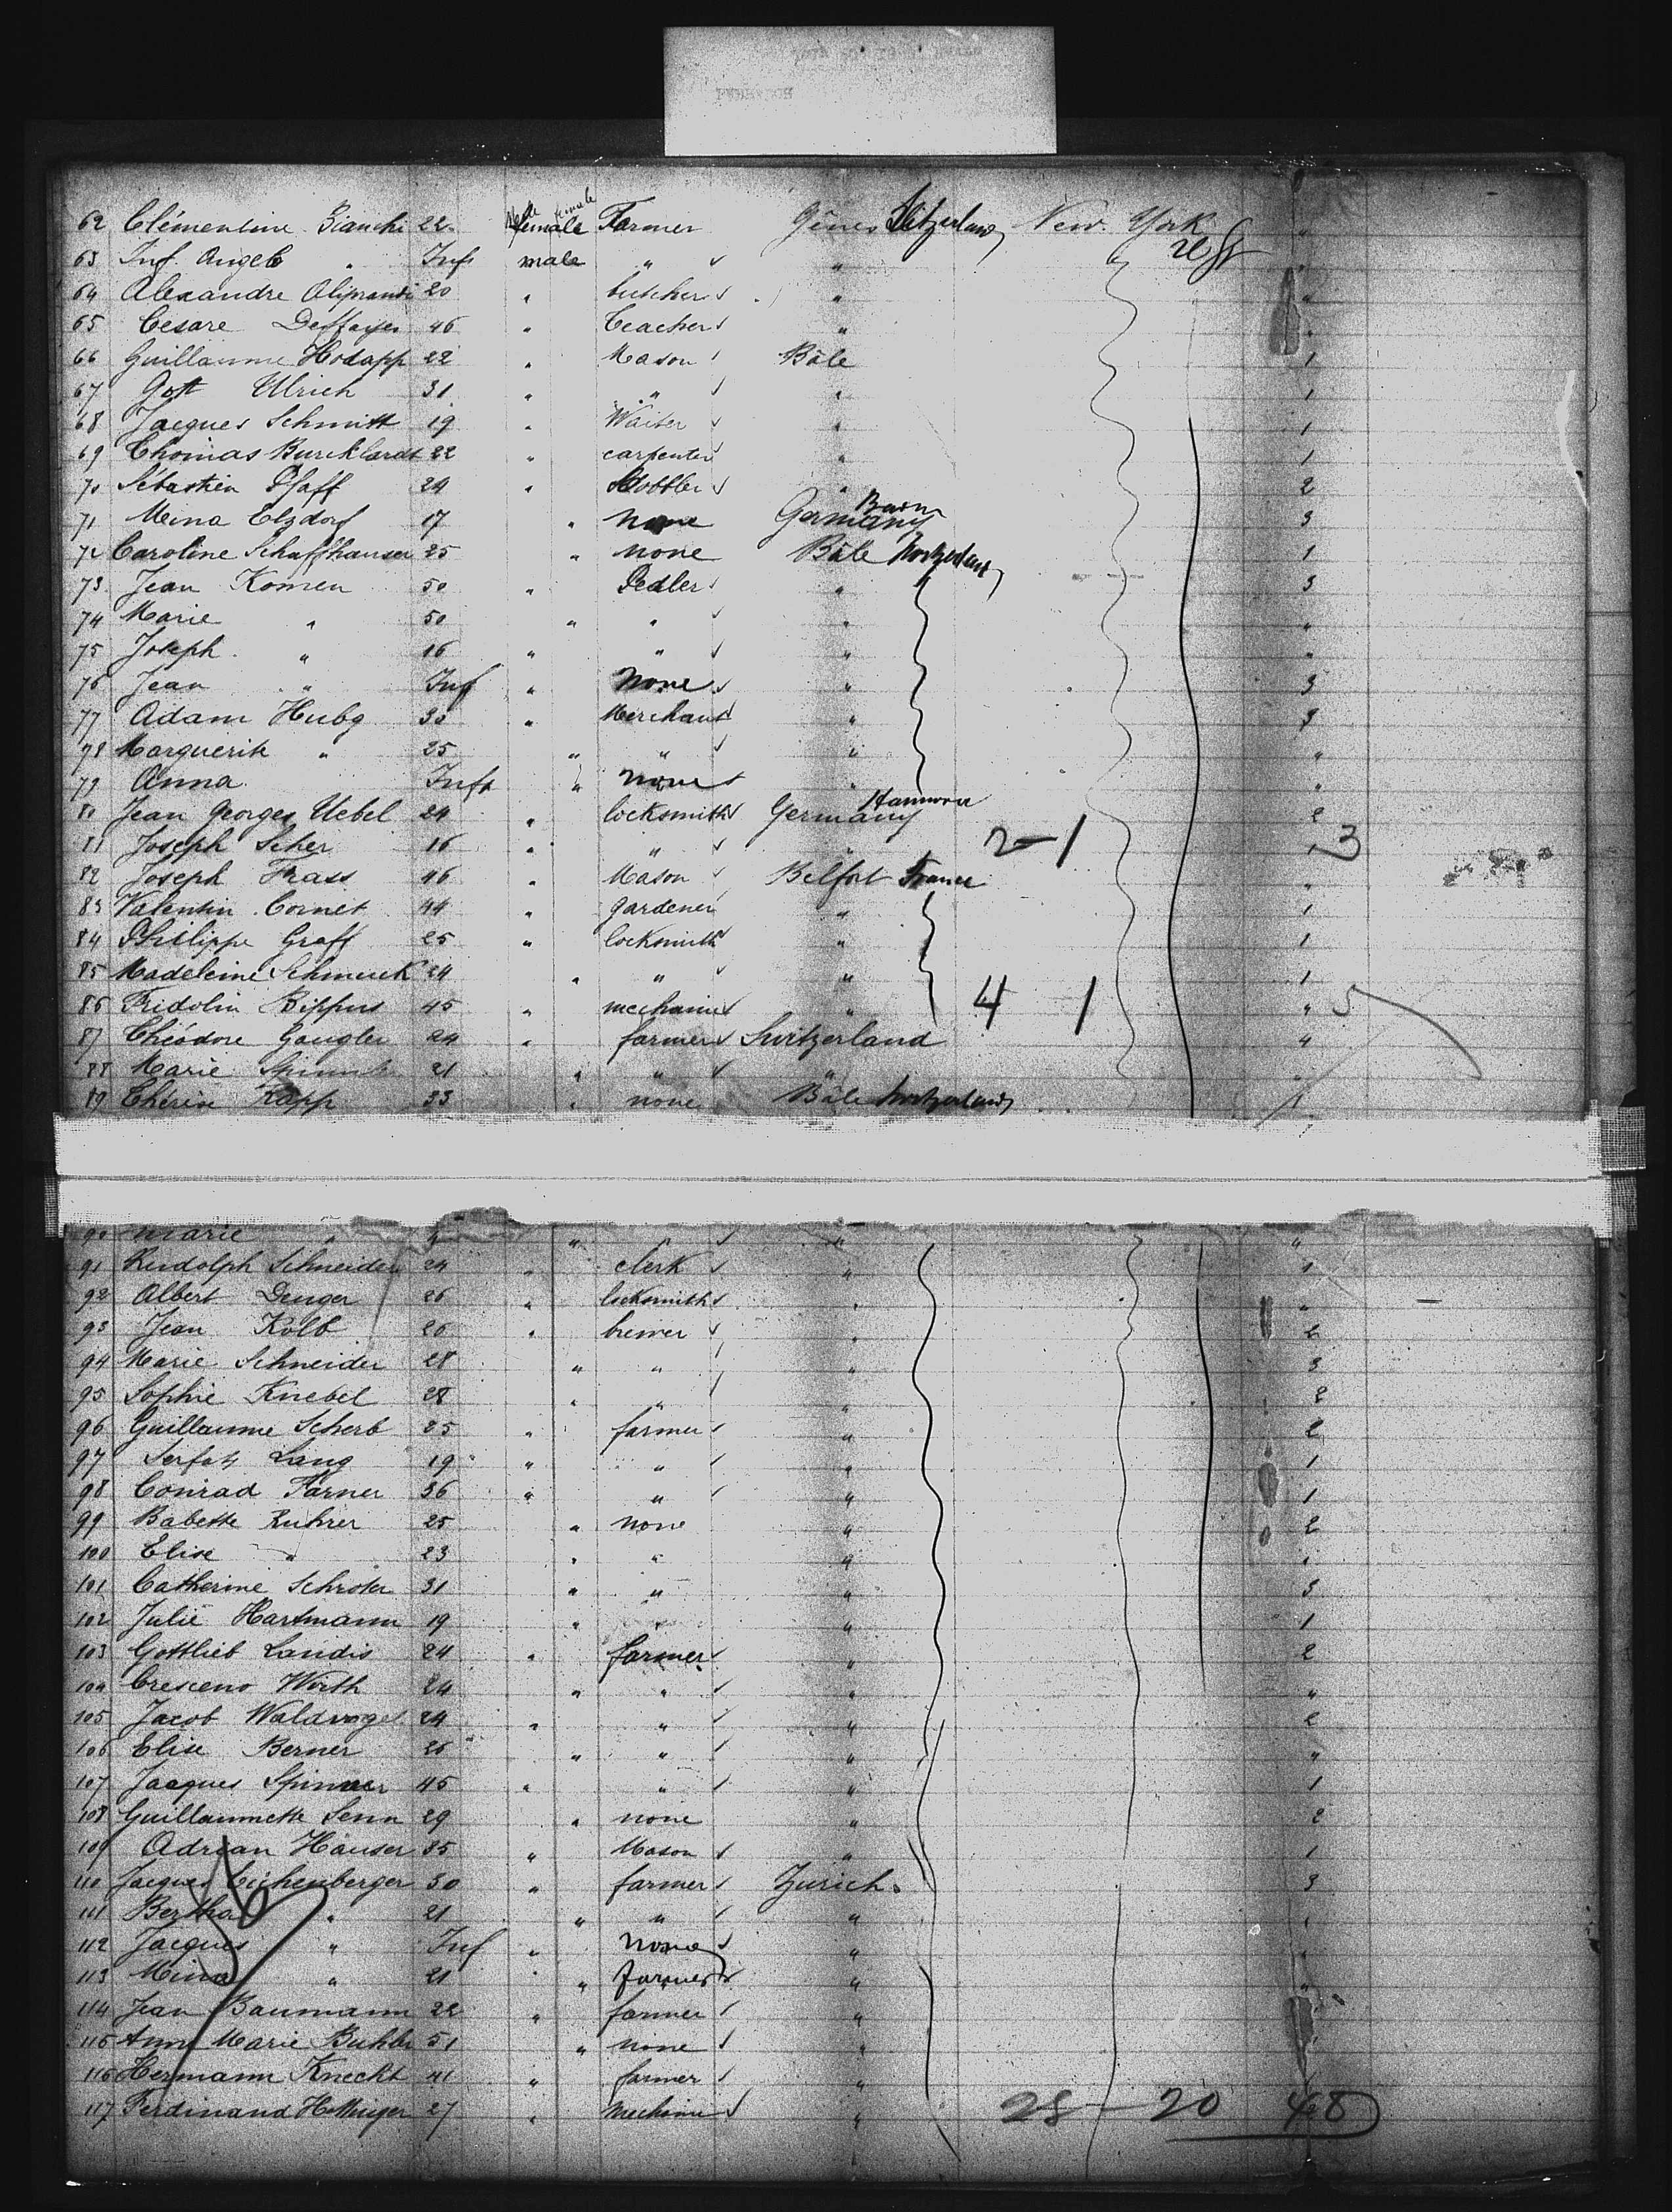 62 Clémentine Bianchi 22 female Farmer Gênes Switzerland New York "
63 Inf. Angelo " Inf male " " "
64 Alexandre Oliprandi 20 " butcher " "
65 Cesare Deffayes 46 " Teacher " "
66 Guillaume Hodapp 22 " Mason Bâle 1
67 Gott Ulrich 31 " " " 1
68 Jacques Schmitt 19 " Waiter " 1
69 Thomas Burcklardt 22 " carpenter " 1
70 Sébastien Pfaff 24 " Cobbler " 2
71 Meina Elzdorf 17 " none Germany 3
72 Caroline Schaffhauser 25 " none Bâle Switzerland 1
73 Jean Komen 50 " Pedler " 3
74 Marie " 50 " " " "
75 Joseph " 16 " " " "
76 Jean " Inf " None " 3
77 Adam Hubg 33 " Merchant " 3
78 Marguerite " 25 " " " "
79 Anna Inft " none " "
80 Jean Georges Uebel 24 " locksmith Germany Hannover 2
81 Joseph Scher 16 " " " 2-1 " 3
82 Joseph Frass 46 " Mason Belfort France "
83 Valentin Cornet 44 " gardener " 1
84 Philippe Graff 25 " locksmith " 1
85 Madeleine Schmuck 24 " " " 1
86 Fridolin Bippus 45 " mechanic " 4 1 " 5
87 Théodore Gaugler 24 " farmer Switzerland 4
88 Marie 21 " " " "
89 Thérèse Rapp 33 " none Bâle Switzerland 1
90 Marie " " " " "
91 Rudolph Schneider 24 " clerk " 1
92 Albert Denger 26 " locksmith " "
93 Jean Kolb 26 " brewer " 2
94 Marie Schneider 28 " " " 3
95 Sophie Knebel 28 " " " 2
96 Guillaume Scherb 25 " farmer " 2
97 Lang 19 " " " 1
98 Conrad Farner 36 " " " 1
99 Babette Ruhrer 25 " none " 2
100 Elise " 23 " " " "
101 Catherine Schroter 31 " " " 3
102 Julie Hartmann 19 " " " 1
103 Gottlieb Landis 24 " farmer " 2
104 Wirth 24 " " " "
105 Jacob Waldvogel 24 " " " 2
106 Elise Berner 26 " " " "
107 Jacques Spinner 45 " " " 1
108 Guillaumette Senn 29 " none " 2
109 Adrian Häuser 35 " Mason " 1
110 Jacques Eichenberger 30 " farmer Zurich 3
111 Bertha " 21 " " " "
112 Jacques " Inf " None " "
113 Mina " 21 " farmer " "
114 Jean Baumann 22 " farmer "
115 Anne Marie Buhler 51 " none "
116 Hermann Knecht 41 " farmer "
117 Ferdinand Hottinger 27 " mechanic " 28 - 20 48